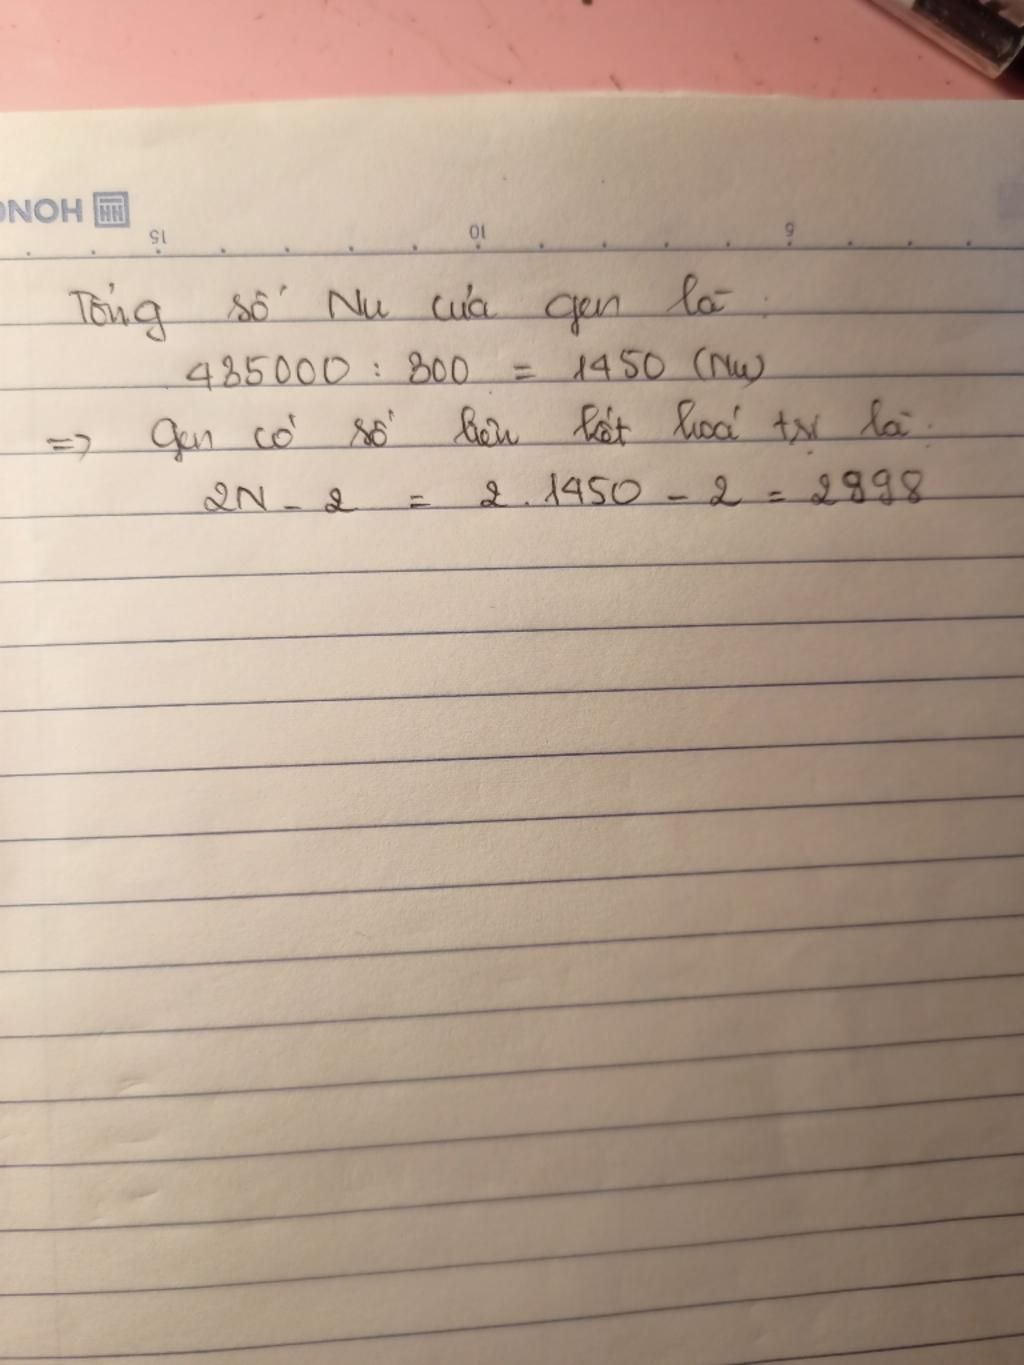 HONG
15 10 5
Tổng số Nu của gen là:
435000 : 300 = 1450 (Nu)
=> Gen có số liên kết hoá trị là:
2N - 2 = 2.1450 - 2 = 2898